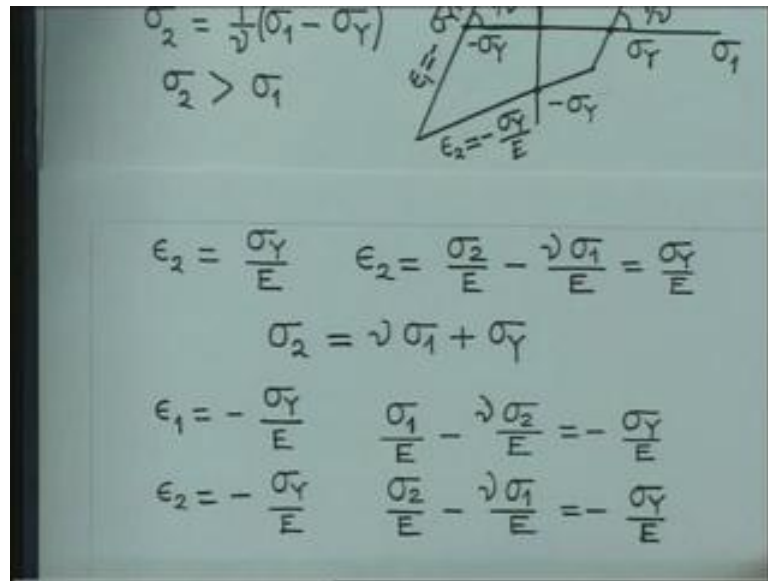 σ₂ = 1/ν (σ₁ - σ_Y)
σ₂ > σ₁
-σ_Y σ_Y σ₁
ε₁ = -
-σ_Y
ε₂ = - σ_Y/E
ε₂ = σ_Y/E ε₂ = σ₂/E - νσ₁/E = σ_Y/E
σ₂ = ν σ₁ + σ_Y
ε₁ = - σ_Y/E σ₁/E - νσ₂/E = - σ_Y/E
ε₂ = - σ_Y/E σ₂/E - νσ₁/E = - σ_Y/E